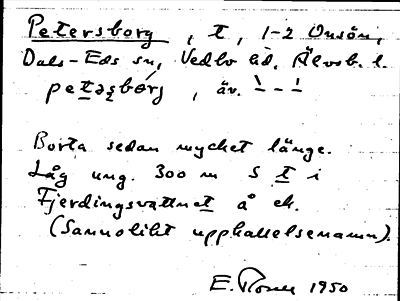 Petersborg, t, 1-2 Onsön,
Dals-Eds sn, Vedbo hd, Älvsb. l.
petəʂbórj, äv. ˋ – – ˊ
Borta sedan mycket länge.
Låg ung. 300 m S t i
Fjerdingsvattnet å ek.
(Sannolikt uppkallelsenamn).
E. 1950